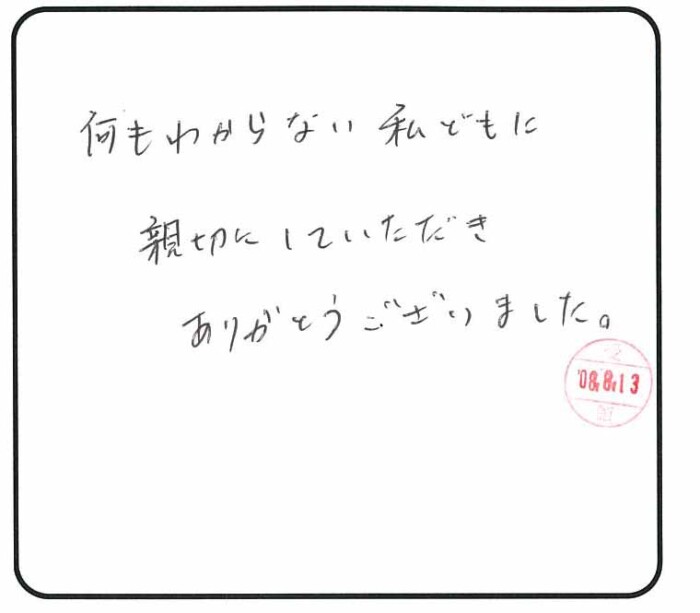 何もわからない私どもに
親切にしていただき
ありがとうございました。
'08.8.13